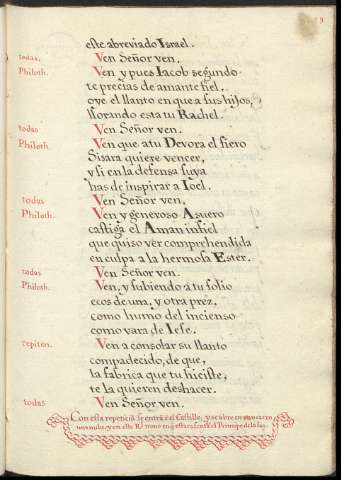 este abreviado Israel.
todas. Ven Señor ven.
Philoth. Ven y pues Iacob segundo
te precias de amante fiel,
oye el llanto en que a sus hijos,
llorando esta tu Rachel.
todas Ven Señor ven.
Philoth. Ven que a tu Devora el fiero
Sisara quiere vencer,
y si en la defensa suya
has de inspirar a Ioel.
todas Ven Señor ven.
Philoth. Ven y generoso Asuero
castiga el Aman infiel
que quiso ver comprehendida
en culpa a la hermosa Ester.
todas Ven Señor ven.
Philoth. Ven, y subiendo a tu solio
ecos de una, y otra prez,
como humo del incienso
como vara de Iese.
repiten. Ven a consolar su llanto
compadecido, de que,
la fabrica que tu hiciste,
te la quieren deshacer.
todas Ven Señor ven.
Con esta repeticiō se entra el Castillo, y se abre en
una nube, y en este el Principe de la